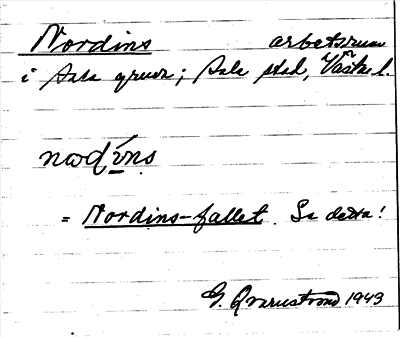 Nordins arbetsrum
i Sala gruva; Sala stad, Västm l.
= Nordins-fallet. Se detta!
G. Qvarnström 1943